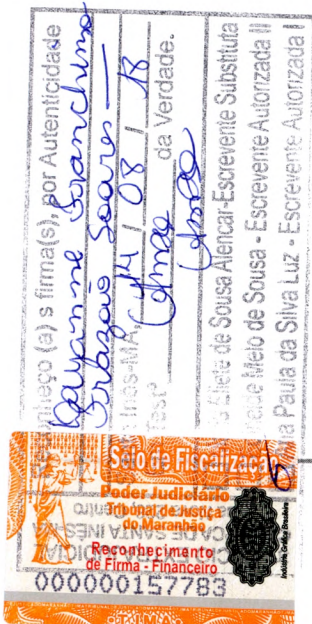 nheço (a) s firma(s), por Autenticidade
Soares
Ines-MA, 14 / 08 / 18
Test° da Verdade.
de Sousa Alencar-Escrevente Substituta
Melo de Sousa - Escrevente Autorizada II
Paula da Silva Luz - Escrevente Autorizada
Selo de Fiscalizaçã
Poder Judiciário
Tribunal de Justiça
do Maranhão
CA DE SANTA INES-MA
Reconhecimento
de Firma - Financeiro
000000157783
Indústria Gráfica Brasileira